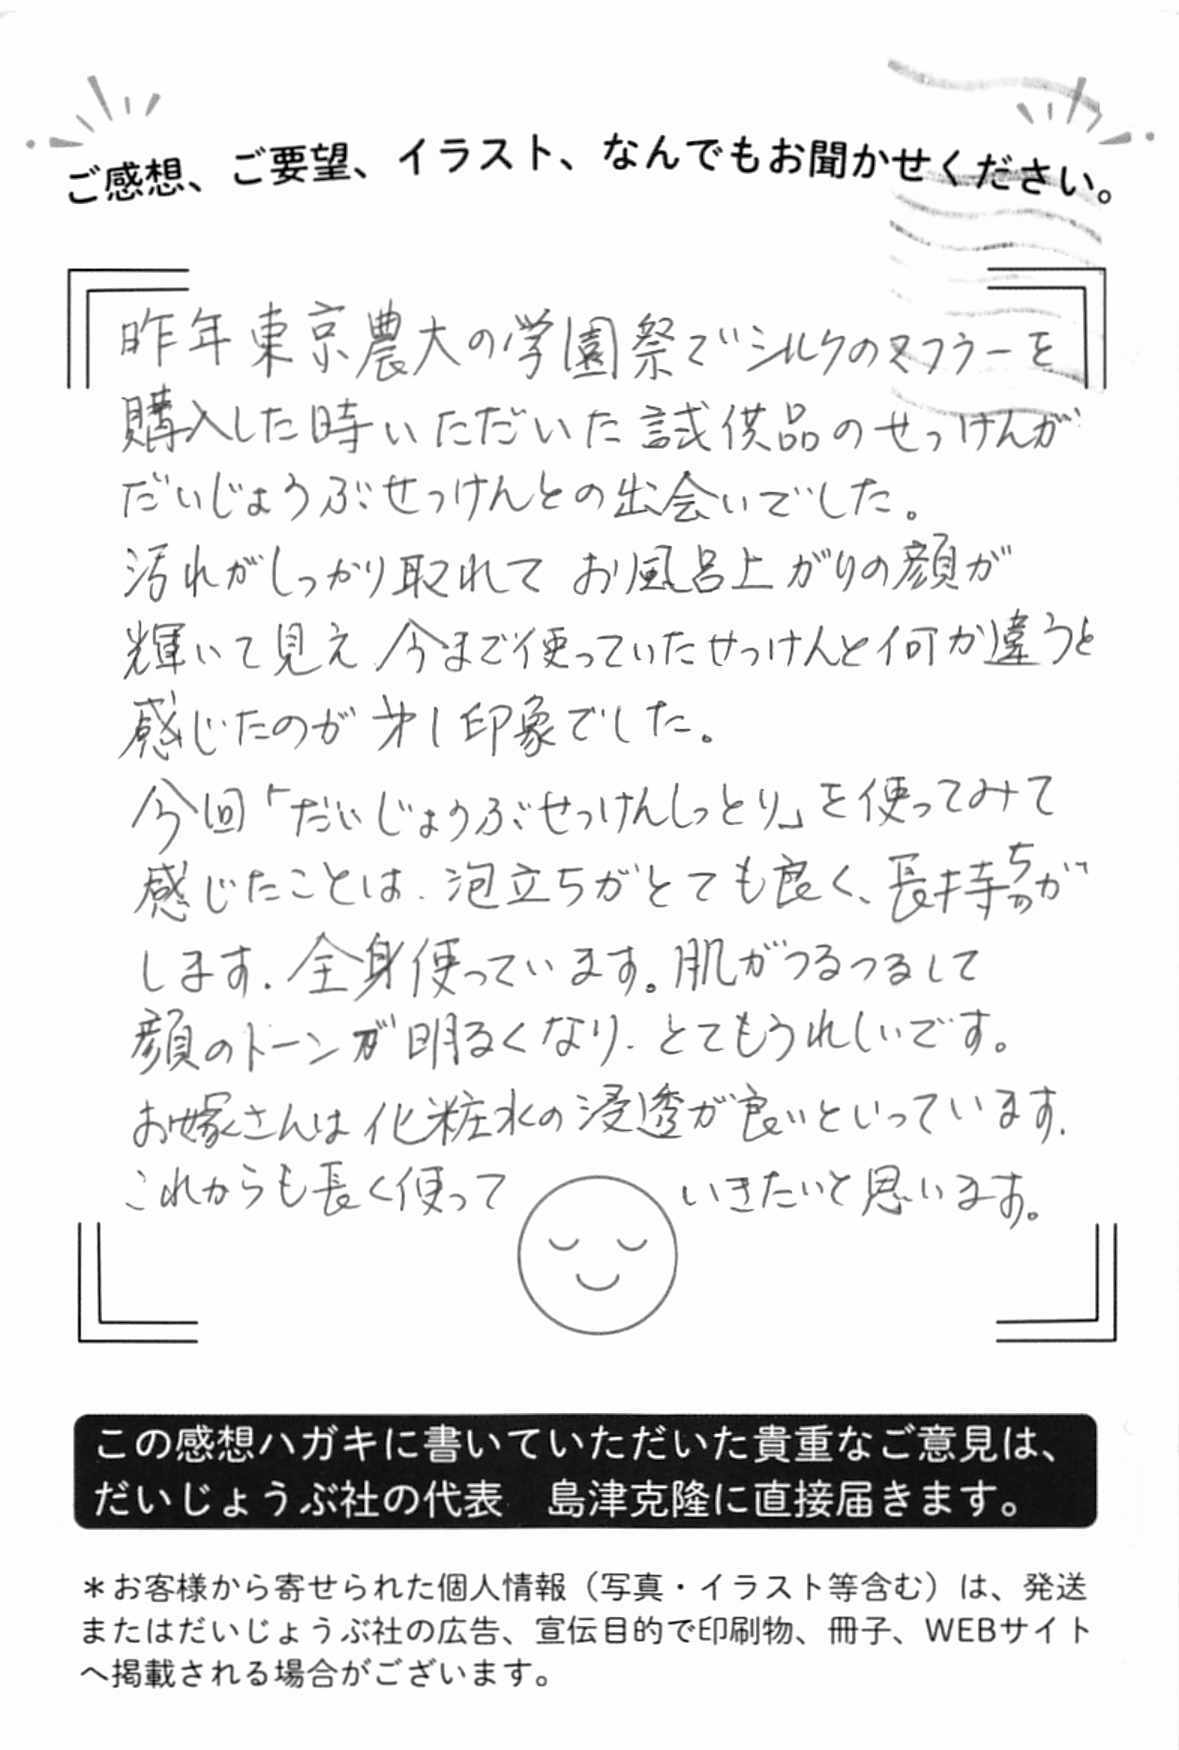 ご感想、ご要望、イラスト、なんでもお聞かせください。
昨年東京農大の学園祭でシルクのマフラーを
購入した時いただいた試供品のせっけんが
だいじょうぶせっけんとの出会いでした。
汚れがしっかり取れて お風呂上がりの顔が
輝いて見え、今まで使っていたせっけんと何か違うと
感じたのが 才1印象でした。
今回「だいじょうぶせっけんしっとり」を使ってみて
感じたことは、泡立ちがとても良く、長持ちが
します。全身使っています。肌がつるつるして
顔のトーンが明るくなり、とてもうれしいです。
お嫁さんは化粧水の浸透が良いといっています。
これからも長く使って いきたいと思います。
この感想ハガキに書いていただいた貴重なご意見は、
だいじょうぶ社の代表 島津克隆に直接届きます。
＊お客様から寄せられた個人情報（写真・イラスト等含む）は、発送
またはだいじょうぶ社の広告、宣伝目的で印刷物、冊子、WEBサイト
へ掲載される場合がございます。